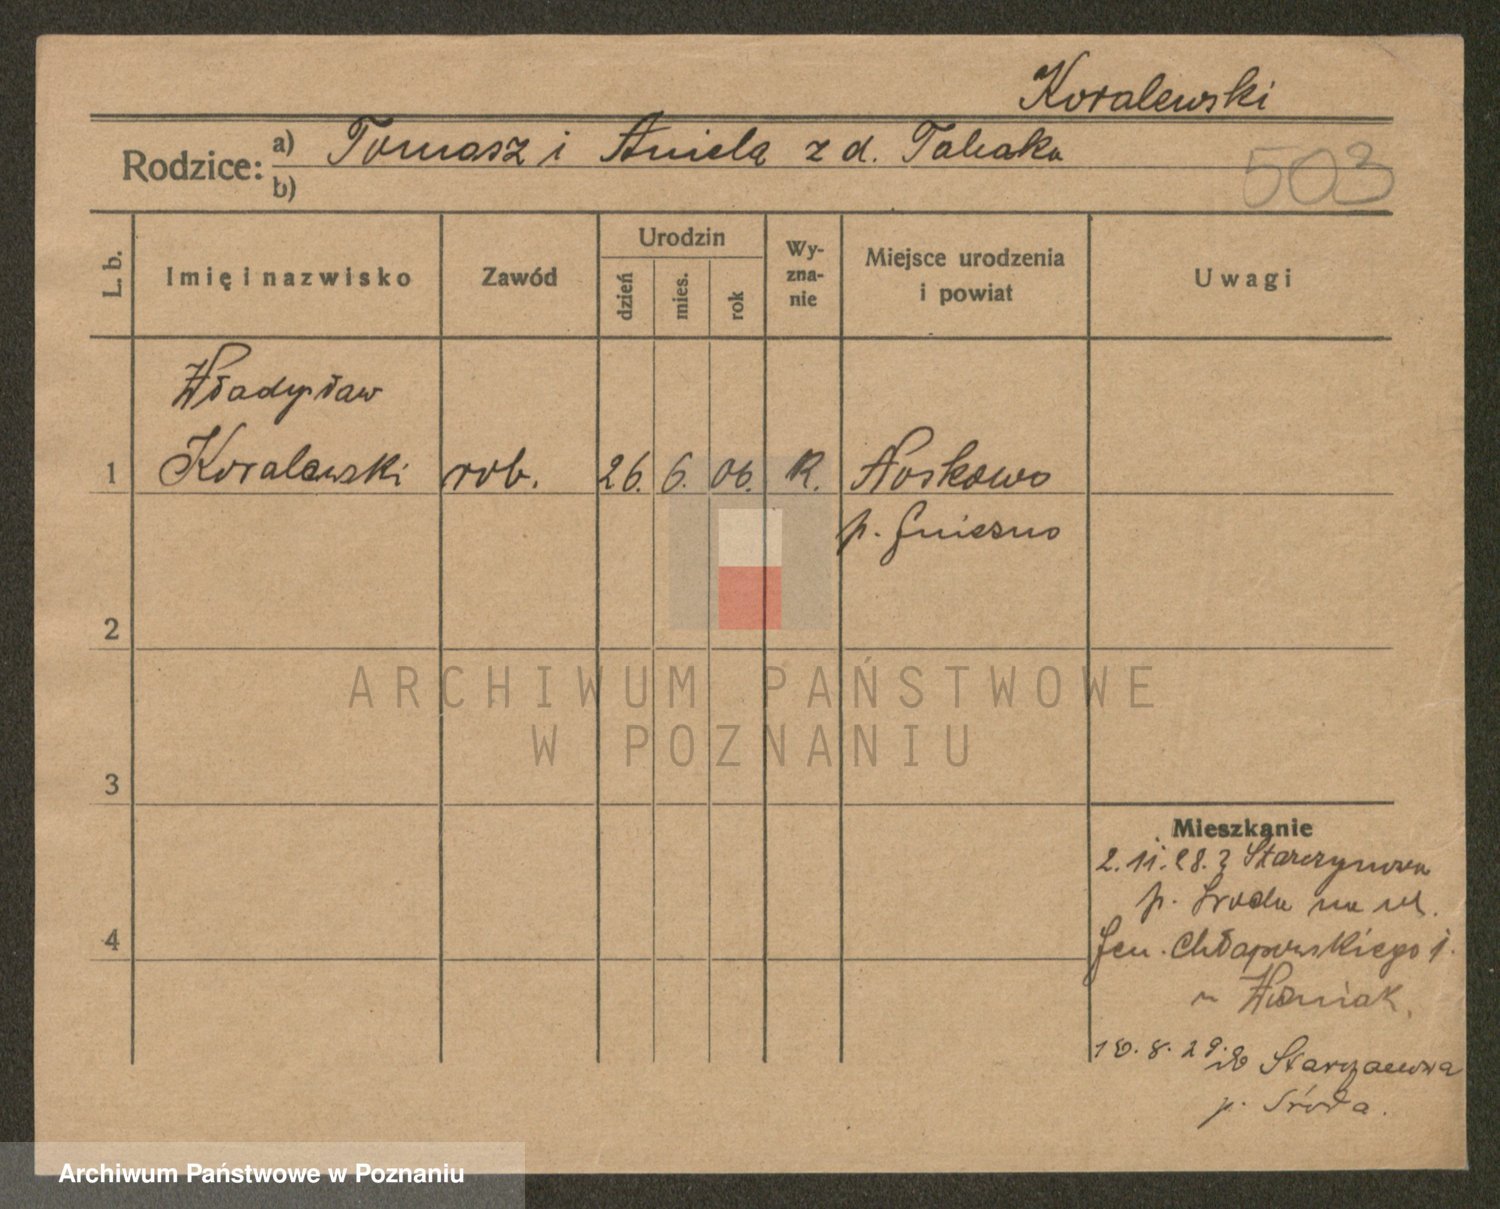 Koralewski
Rodzice: a) Tomasz i Aniela z d. Tabaka
b)
503
L. b.
Imię i nazwisko
Zawód
Urodzin
dzień
mies.
rok
Wy-
zna-
nie
Miejsce urodzenia
i powiat
Uwagi
Władysław
1 Koralewski rob. 26. 6. 06. R. Noskowo
p. Gniezno
2
3
4
ARCHIWUM PAŃSTWOWE
W POZNANIU
Mieszkanie
2.11.28. z
p. Środa na ul.
Gen. Chłapowskiego 1.
u Woźniak.
18.8.29. do
p. Środa.
Archiwum Państwowe w Poznaniu